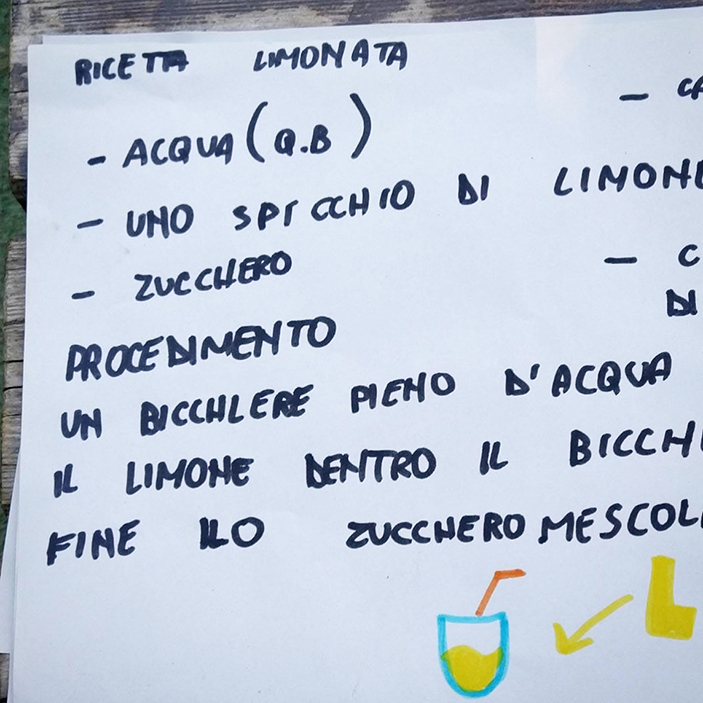 RICETTA LIMONATA
- CA
- ACQUA (Q.B)
- UNO SPICCHIO DI LIMONE
- ZUCCHERO
- C
DI
PROCEDIMENTO
UN BICCHIERE PIENO D'ACQUA
IL LIMONE DENTRO IL BICCHI
FINE ILO ZUCCHERO MESCOL
L